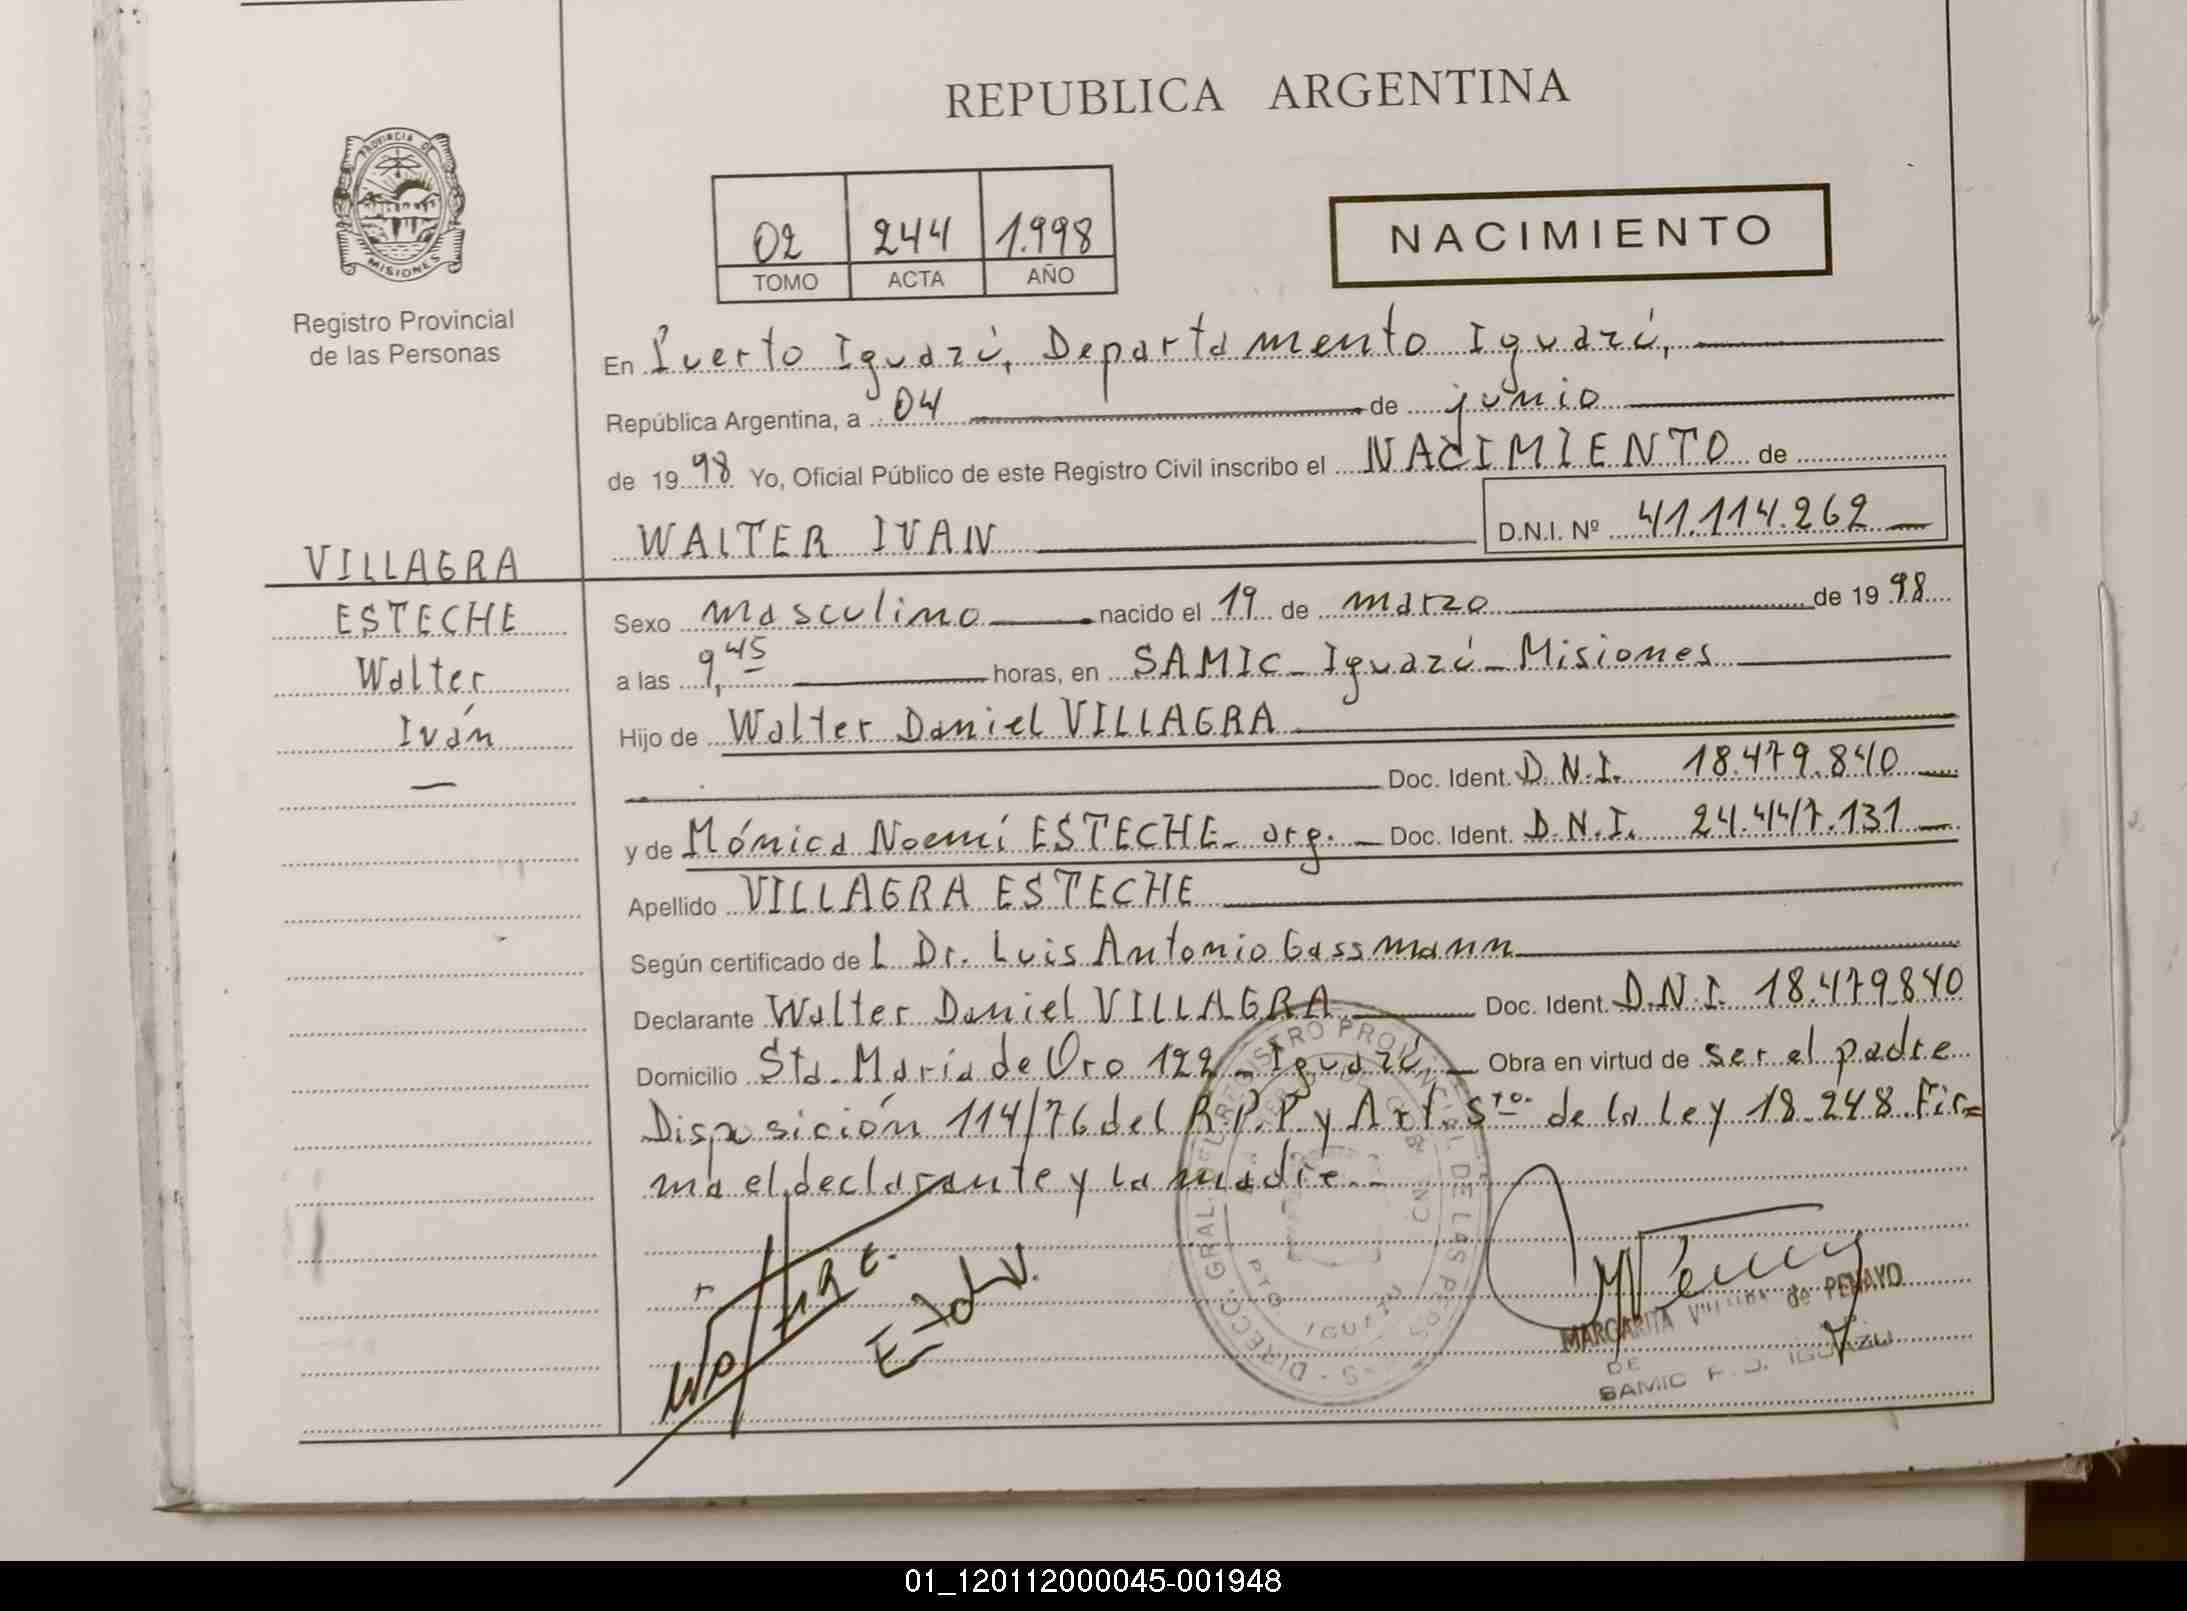 REPUBLICA ARGENTINA
PROVINCIA DE
MISIONES
Registro Provincial
de las Personas
02 244 1.998
TOMO ACTA AÑO
NACIMIENTO
En Puerto Iguazú, Departamento Iguazú,
República Argentina, a 04 de junio
de 1998 Yo, Oficial Público de este Registro Civil inscribo el NACIMIENTO de
WALTER IVAN D.N.I. Nº 41.114.262
VILLAGRA
ESTECHE
Walter
Iván
Sexo masculino nacido el 19 de marzo de 1998
a las 9,45 horas, en SAMIC - Iguazú - Misiones
Hijo de Walter Daniel VILLAGRA
Doc. Ident. D.N.I. 18.479.840
y de Mónica Noemí ESTECHE - arg. - Doc. Ident. D.N.I. 24.447.131
Apellido VILLAGRA ESTECHE
Según certificado de L Dr. Luis Antonio Gassmann
Declarante Walter Daniel VILLAGRA Doc. Ident. D.N.I. 18.479.840
Domicilio Sta. María de Oro 122 - Iguazú - Obra en virtud de ser el padre
Disposición 114/76 del R.P.P. y Art. 5to. de la Ley 18.248. Fir=
ma el declarante y la madre.-
DIRECC. GRAL. DEL REGISTRO PROVINCIAL DE LAS PERSONAS
PTO IGUAZU
MARGARITA de PENAYO
DE
SAMIC P. J. IGUAZU
01_120112000045-001948